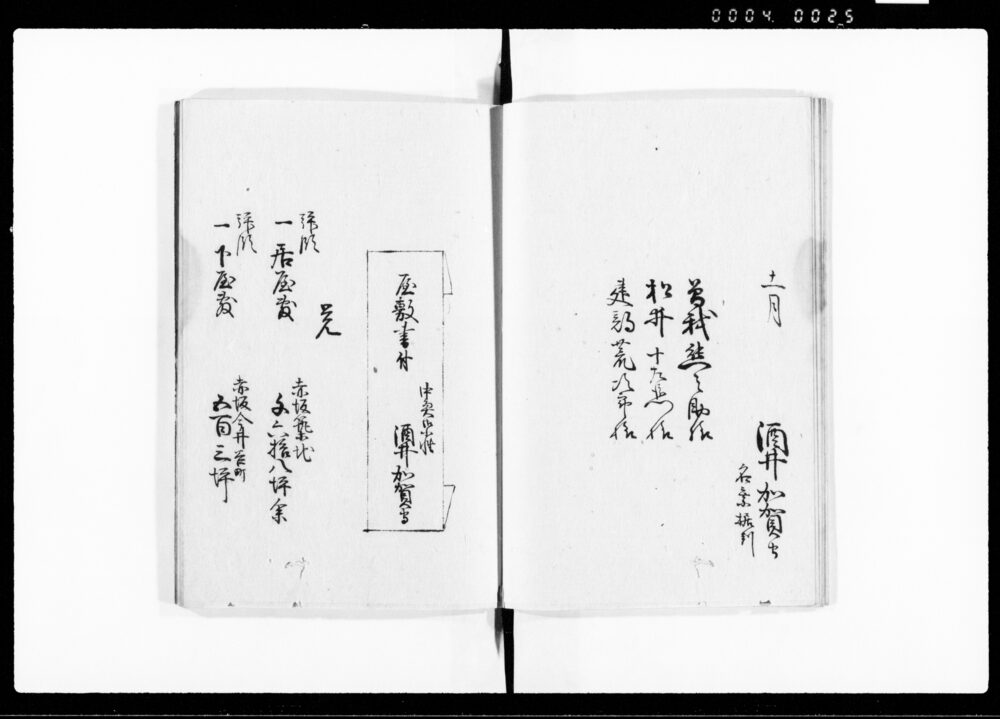 0004. 0025
十一月
酒井加賀守
名乗据判
曽我熊之助様
松井十左衛門様
建部荒次郎様
屋敷書付
中奥御小姓
酒井加賀守
覚
拝領
一居屋敷
赤坂築地
千六拾八坪余
拝領
一下屋敷
赤坂今井谷町
五百三坪